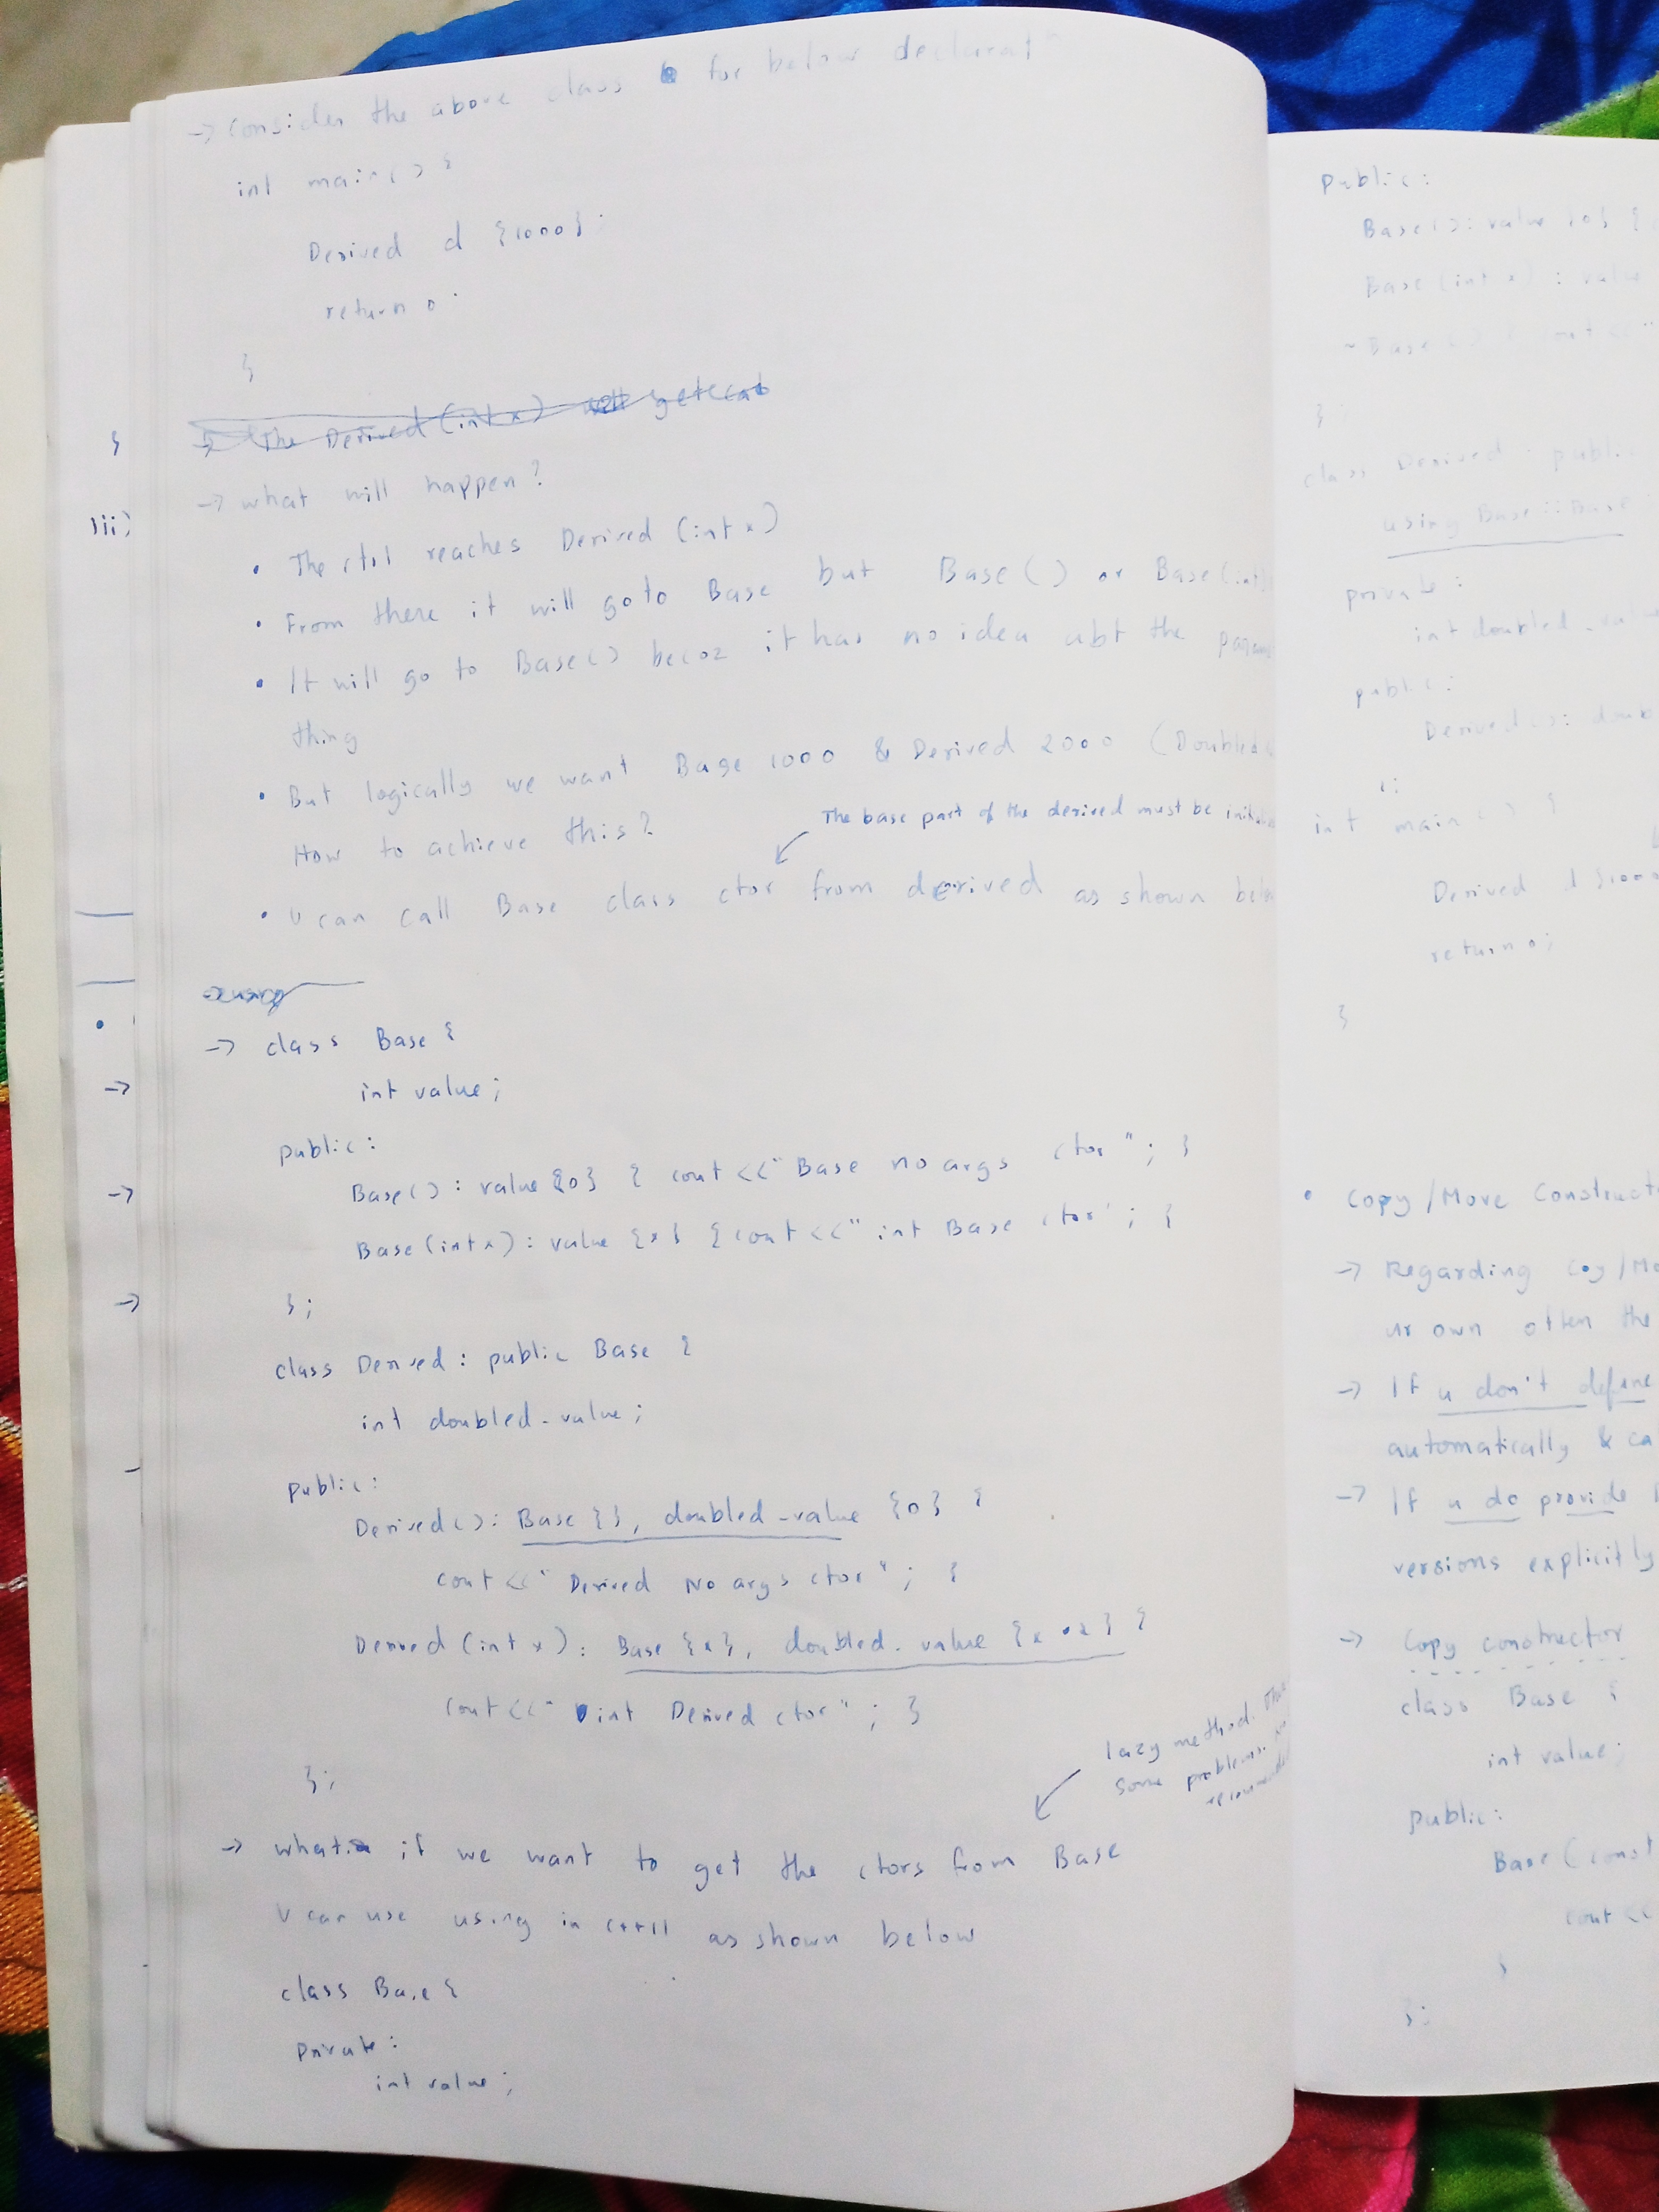 -> Consider the above class for below declarat^n
int main() {
Derived d {1000};
return 0;
}
-> The Derived (int x) will get
-> what will happen?
• The ctrl reaches Derived (int x)
• From there it will goto Base but Base() or Base(int)
• It will go to Base() becoz it has no idea abt the
thing
• But logically we want Base 1000 & Derived 2000 (Doubled
How to achieve this?
The base part of the derived must be
• U can call Base class ctor from derived as shown
-> using
-> class Base {
int value;
public:
Base(): value {0} { cout <<"Base no args ctor"; }
Base(int x): value {x} {cout <<"int Base ctor"; }
};
class Derived: public Base {
int doubled_value;
public:
Derived(): Base {}, doubled_value {0} {
cout <<"Derived No args ctor"; }
Derived (int x): Base {x}, doubled_value {x * 2} {
cout <<"int Derived ctor"; }
};
lazy method.
some problems.
-> what if we want to get the ctors from Base
U can use using in c++11 as shown below
class Base {
private:
int value;
}
iii)
•
->
->
->
public:
Base(): value {0} {
Base (int x) : value
~Base ()
}
class Derived : public
using Base::Base
private:
int doubled_value
public:
Derived():
};
int main () {
Derived d {1000
return 0;
}
• Copy/Move
-> Regarding Coy/
ur own often the
-> If u don't define
automatically &
-> If u do provide
versions explicitly
-> Copy constructor
class Base {
int value;
public:
Base (const
cout <<
}
};